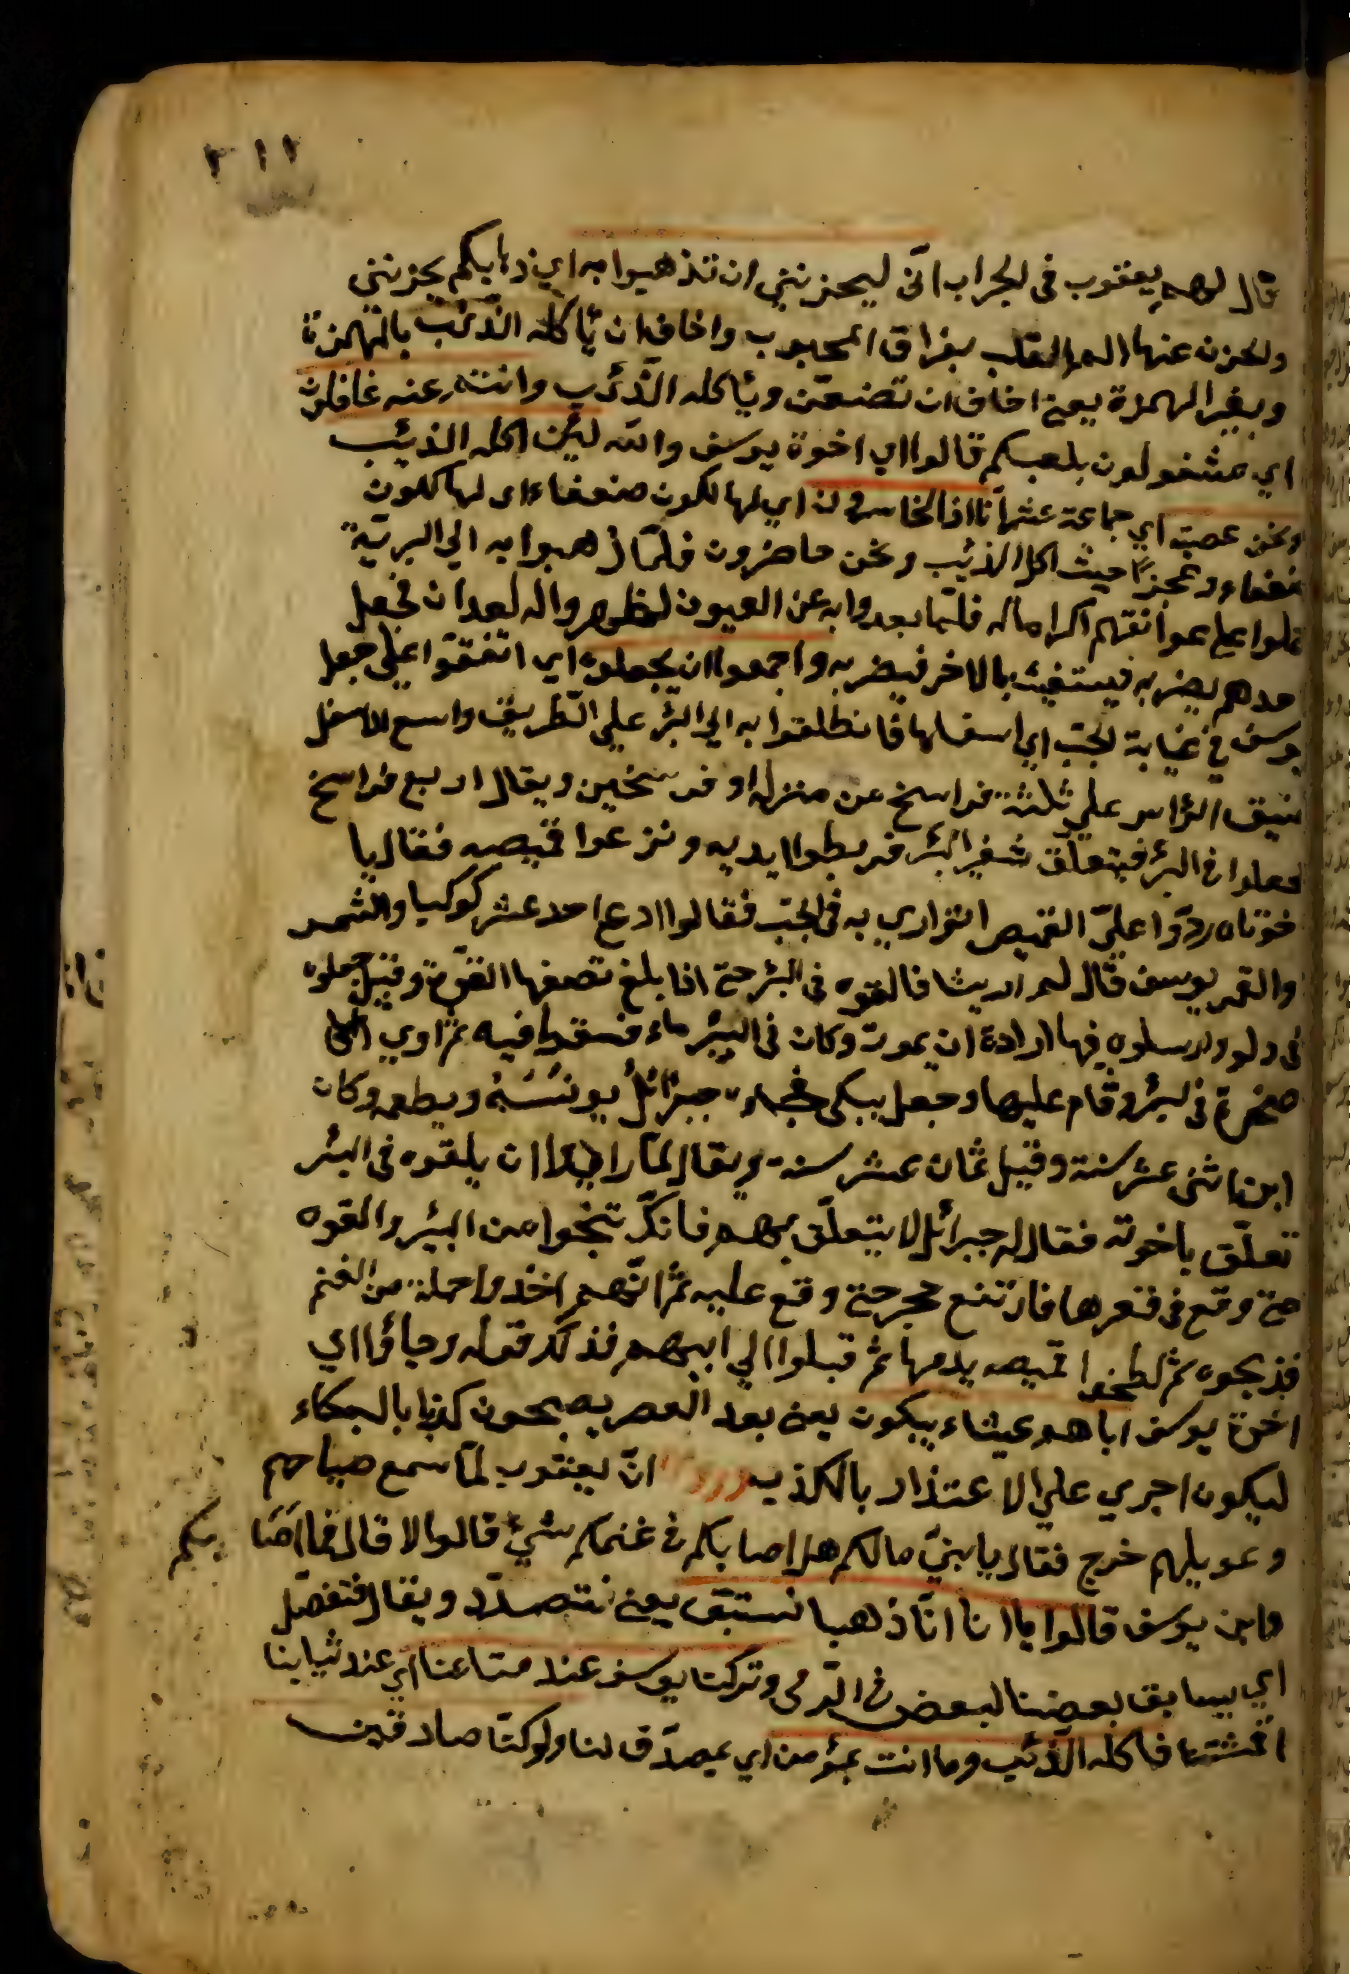 ٣١٢
قال لهم يعقوب فى الجراب انّى ليحزننى ان تذهبوا به اي ذهابكم يحزننى
والحزن عنها الم القلب بفراق المحبوب واخاف ان يأكله الذّئب بالهمزة
وبغير الهمزة يعنى اخاف ان تضيعن ويأكله الذّئب وانتم عنه غافلون
اي مشغولون بلعبكم قالوا اي اخوة يوسف والله لئن اكله الذئب
ونحن عصبة اي جماعة عشر انّا اذا لخاسرون اي لها لكون ضعفاء اى لهالكون
ضعفاء وعجزا حيث اكل الذئب ونحن حاضرون فلمّا ذهبوا به الي البريّة
حملوا على عواتقهم اكراما له فلمّا بعدوا به عن العيون اظهروا له العداوة فجعل
احدهم يضربه فيستغيث بالاخر فيضربه واجمعوا ان يجعلوه اي اتفقوا على جعل
يوسف في غيابة الجبّ اي اسفلها فانطلقوا به الي البئر علي الطريق واسع الاسفل
ضيق الرّاس علي ثلثة فراسخ من منزله او فرسخين ويقال اربع فراسخ
فجعلوا فى البئر فيتعلّق شفير البئر فربطوا يديه ونزعوا قميصه فقال يا
خوتاه ردّوا عليّ القميص اتواري به فى الجبّ فقالوا ادع احد عشر كوكبا والشمس
والقمر يوسف قال لم ار شيئا فالقوه فى البئر حتى اذا بلغ نصفها القوه وقيل جعلوه
فى دلو وارسلوه فيها ارادة ان يموت وكان فى البئر ماء فسقط فيه ثم اوي الى
صخرة فى البئر وقام عليها وجعل يبكى فجاء جبرائل يونسه ويطعمه وكان
ابن اثنى عشر سنة وقيل ثمان عشر سنة ويقال لمّا رادوا ان يلقوه فى البئر
تعلّق باخوته فقال له جبرائل لا يتعلّق بهم فانكّ تنجوا من البئر والقوه
حتى وقع فى قعرها فارتفع حجر حتى وقع عليه ثمّ انّهم اخذوا حملة من الغنم
فذبحوه ثم لطخوا قميصه بدمها ثمّ قبلوا الي ابيهم فذلك قوله وجاؤا اي
اخوة يوسف اباهم عيشاء يبكون يعنى بعد العصر يصيحون كذبا بالبكاء
ليكون اجرى علي الاعتذار بالكذب انّ يعقوب لمّا سمع صياحهم
وعويلهم خرج فقال يا بنيّ مالكم هل اصابكم فى غنمكم شيئ قالوا لا قال فما اصا بكم
واين يوسف قالوا يا ابانا انّا ذهبنا نستبق يعنى نتصدّد ويقال نتفضل
اي يسابق بعضنا لبعض فى الرّمى وتركنا يوسف عند متاعنا اي عند ثيابنا
اقمشتنا فاكله الذّئب وما انت بمؤمن اي بمصدّق لنا ولو كنّا صادقين